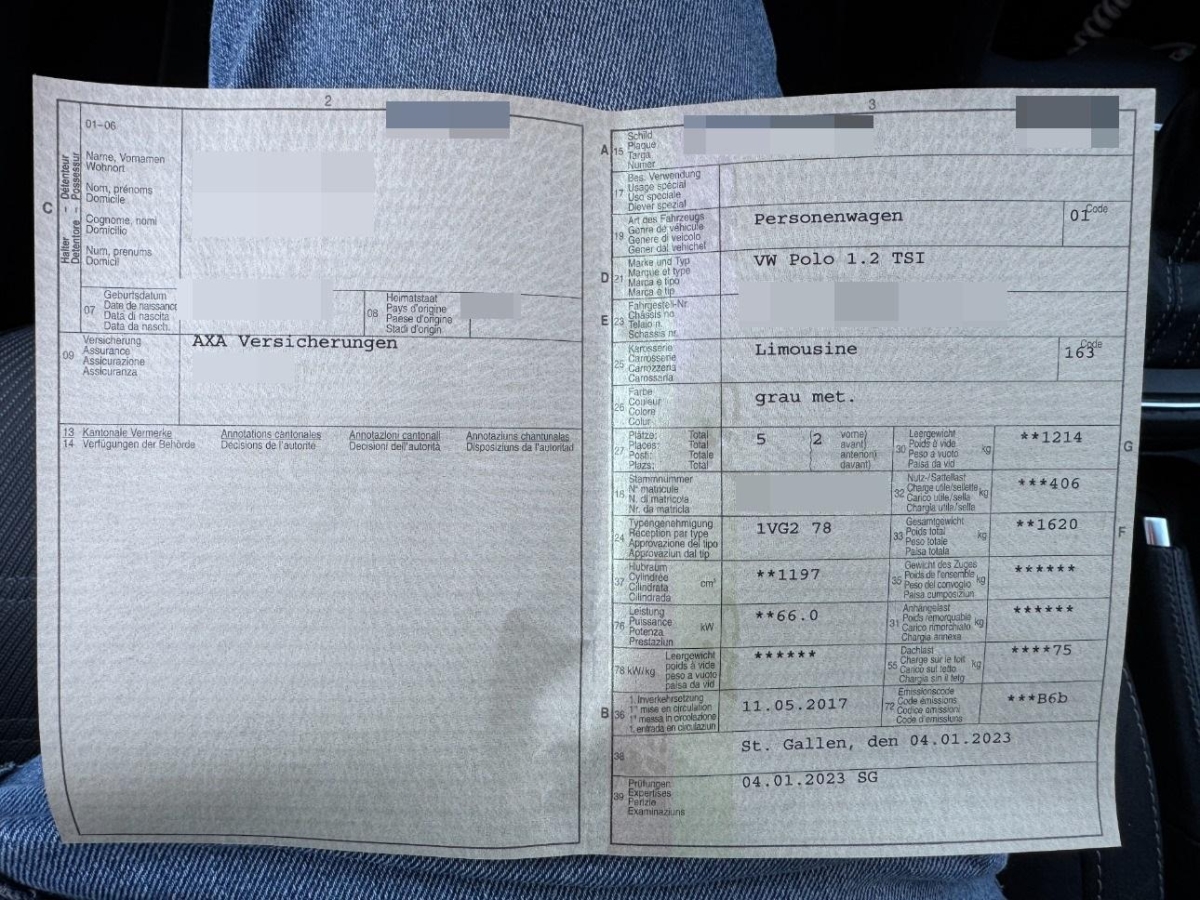 2
01-06
Halter – Détenteur
Detentore – Possessur
C
Name, Vornamen
Wohnort
Nom, prénoms
Domicile
Cognome, nomi
Domicilio
Num, prenums
Domicil
07
Geburtsdatum
Date de naissance
Data di nascita
Data da nasch.
08
Heimatstaat
Pays d'origine
Paese d'origine
Stadi d'origin.
09
Versicherung
Assurance
Assicurazione
Assicuranza
AXA Versicherungen
13 Kantonale Vermerke Annotations cantonales Annotazioni cantonali Annotaziuns chantunalas
14 Verfügungen der Behörde Décisions de l'autorité Decisioni dell'autorità Disposiziuns da l'autoritad
3
A
15
Schild
Plaque
Targa
Numer
17
Bes. Verwendung
Usage spécial
Uso speciale
Diever spezial
19
Art des Fahrzeugs
Genre de véhicule
Genere di veicolo
Gener dal vehichel
Personenwagen
Code
01
D
21
Marke und Typ
Marque et type
Marca e tipo
Marca e tip
VW Polo 1.2 TSI
E
23
Fahrgestell-Nr.
Châssis no
Telaio n.
Schassis nr.
25
Karosserie
Carrosserie
Carrozzeria
Carossaria
Limousine
Code
163
26
Farbe
Couleur
Colore
Colur
grau met.
27
Plätze: Total
Places: Total
Posti: Totale
Plazs: Total
5
(2
vorne)
avant)
anteriori)
davant)
30
Leergewicht
Poids à vide
Peso a vuoto
Paisa da vid
kg
**1214
G
18
Stammnummer
N° matricule
N. di matricola
Nr. da matricla
32
Nutz-/Sattellast
Charge utile/sellette
Carico utile/sella
Chargia utile/sella
kg
***406
24
Typengenehmigung
Réception par type
Approvazione del tipo
Approvaziun dal tip
1VG2 78
33
Gesamtgewicht
Poids total
Peso totale
Paisa totala
kg
**1620
F
37
Hubraum
Cylindrée
Cilindrata
Cilindrada
cm³
**1197
35
Gewicht des Zuges
Poids de l'ensemble
Peso del convoglio
Paisa cumposiziun
kg
******
76
Leistung
Puissance
Potenza
Prestaziun
kW
**66.0
31
Anhängelast
Poids remorquable
Carico rimorchiato
Chargia annexa
kg
******
78 kW/kg
Leergewicht
poids à vide
peso a vuoto
paisa da vid
******
55
Dachlast
Charge sur le toit
Carico sul tetto
Chargia sin il tetg
kg
****75
B
36
1. Inverkehrsetzung
1re mise en circulation
1a messa in circolazione
1. entrada en circulaziun
11.05.2017
72
Emissionscode
Code émissions
Codice emissioni
Code d'emissiuns
***B6b
38
St. Gallen, den 04.01.2023
39
Prüfungen
Expertises
Perizie
Examinaziuns
04.01.2023 SG